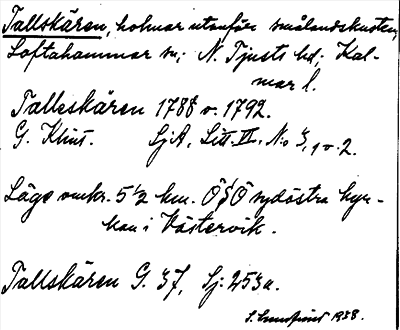 Tallskären, holmar utanför smålandskusten,
Loftahammar sn; N. Tjusts hd; Kal-
mar l.
Talleskären 1788 o. 1792.
G. Klint. SjA, Litt. VI, No 3, 1 o. 2.
Läge omkr. 5 1/2 km. OSO sydöstra kyr-
kan i Västervik.
Tallskären G. 37, Sj: 253a.
1938.